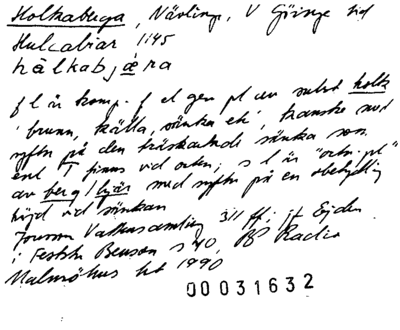 Holkaberga, Nävlinge, V Göinge hd
Hulcabiar 1145
hålkabjæra
f l är komp. f el gen pl av subst holk
'brunn, källa, sänka etc', kanske med
syftn på den träskartade sänka som
enl T finns vid orten; s l är "ortn. pl"
av berg / bjär med syftn på en obetydlig
höjd vid sänkan
Jöran Vattensamling 311 ff; jt Ejder
i Festskr Benson s 40, BP Radio
Malmöhus ht 1990
00031632